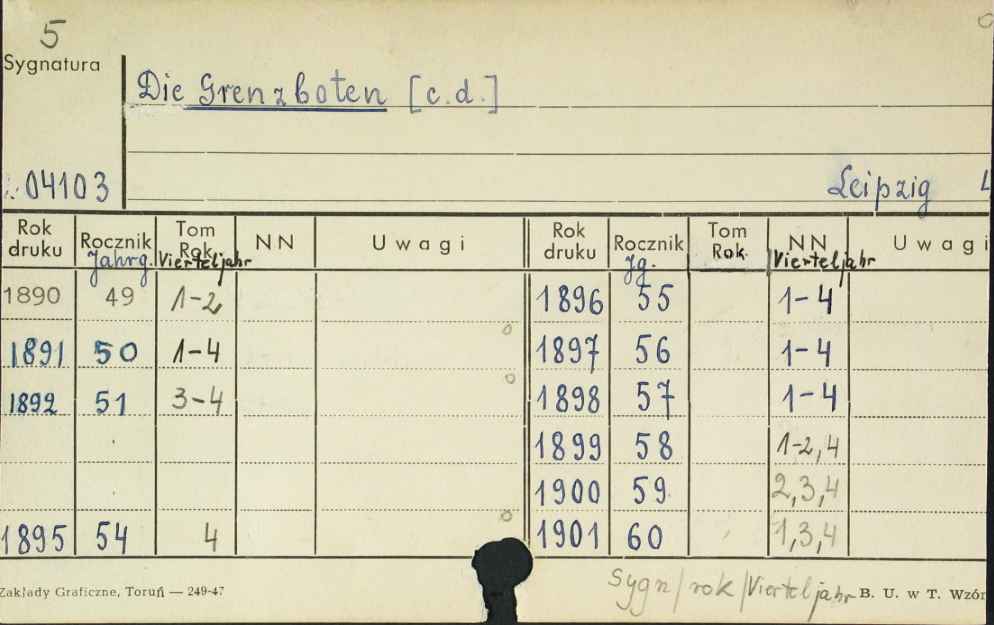 5
Sygnatura
Die Grenzboten [c.d.]
04103
Leipzig 4
Rok druku Rocznik Jahrg. Tom Rok Vierteljahr NN Uwagi Rok druku Rocznik Jg. Tom Rok NN Vierteljahr Uwagi
1890 49 1-2 1896 55 1-4
1891 50 1-4 1897 56 1-4
1892 51 3-4 1898 57 1-4
1899 58 1-2,4
1900 59 2,3,4
1895 54 4 1901 60 1,3,4
Sygn/rok/Vierteljahr
Zakłady Graficzne, Toruń — 249-47 B. U. w T. Wzór